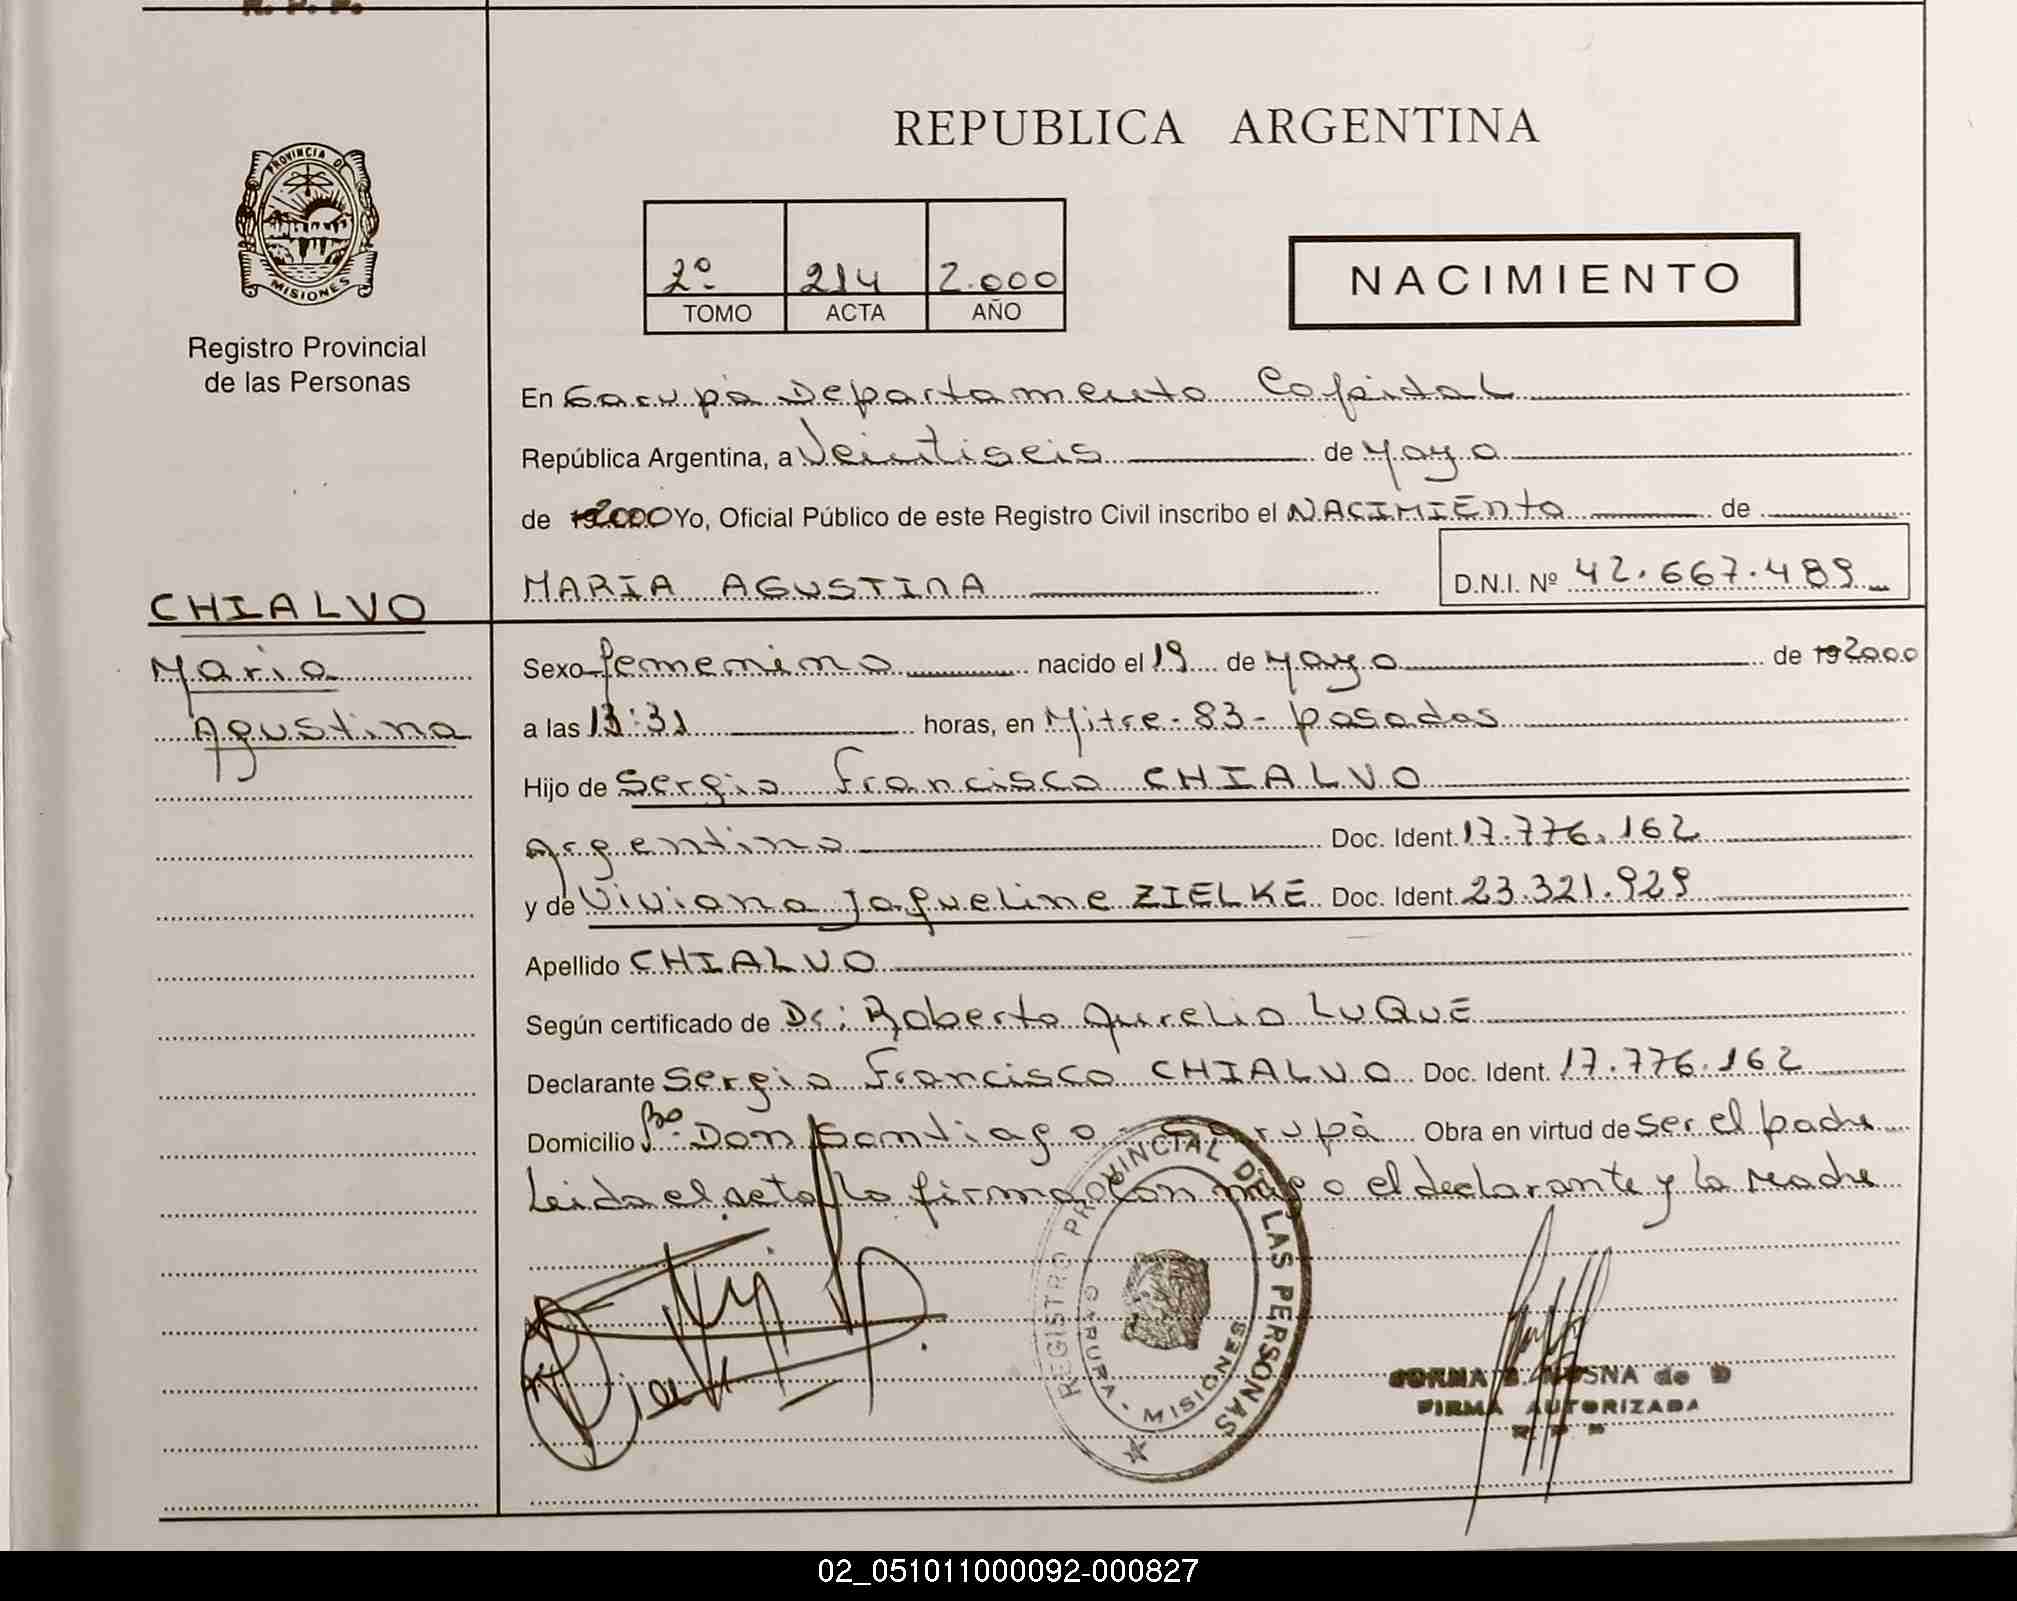 R. P. P.
REPUBLICA ARGENTINA
PROVINCIA DE
MISIONES
2º 214 2.000
TOMO ACTA AÑO
NACIMIENTO
Registro Provincial
de las Personas
En Garupá Departamento Capital
República Argentina, a Veintiseis de Mayo
de 192000 Yo, Oficial Público de este Registro Civil inscribo el NACIMIENTO de
MARIA AGUSTINA D.N.I. Nº 42.667.489
CHIALVO
Maria
Agustina
Sexo femenino nacido el 19 de Mayo de 192000
a las 13:31 horas, en Mitre - 83 - posadas
Hijo de Sergio Francisco CHIALVO
argentino Doc. Ident. 17.776.162
y de Viviana Jaqueline ZIELKE Doc. Ident. 23.321.929
Apellido CHIALVO
Según certificado de Dr: Roberto Aurelio LUQUE
Declarante Sergio Francisco CHIALVO Doc. Ident. 17.776.162
Domicilio Bº. Don Santiago - Garupá Obra en virtud de ser el padre
Leida el acta la firman con migo el declarante y la madre
REGISTRO PROVINCIAL DE LAS PERSONAS
GARUPA - MISIONES
SNA de D
FIRMA AUTORIZADA
02_051011000092-000827